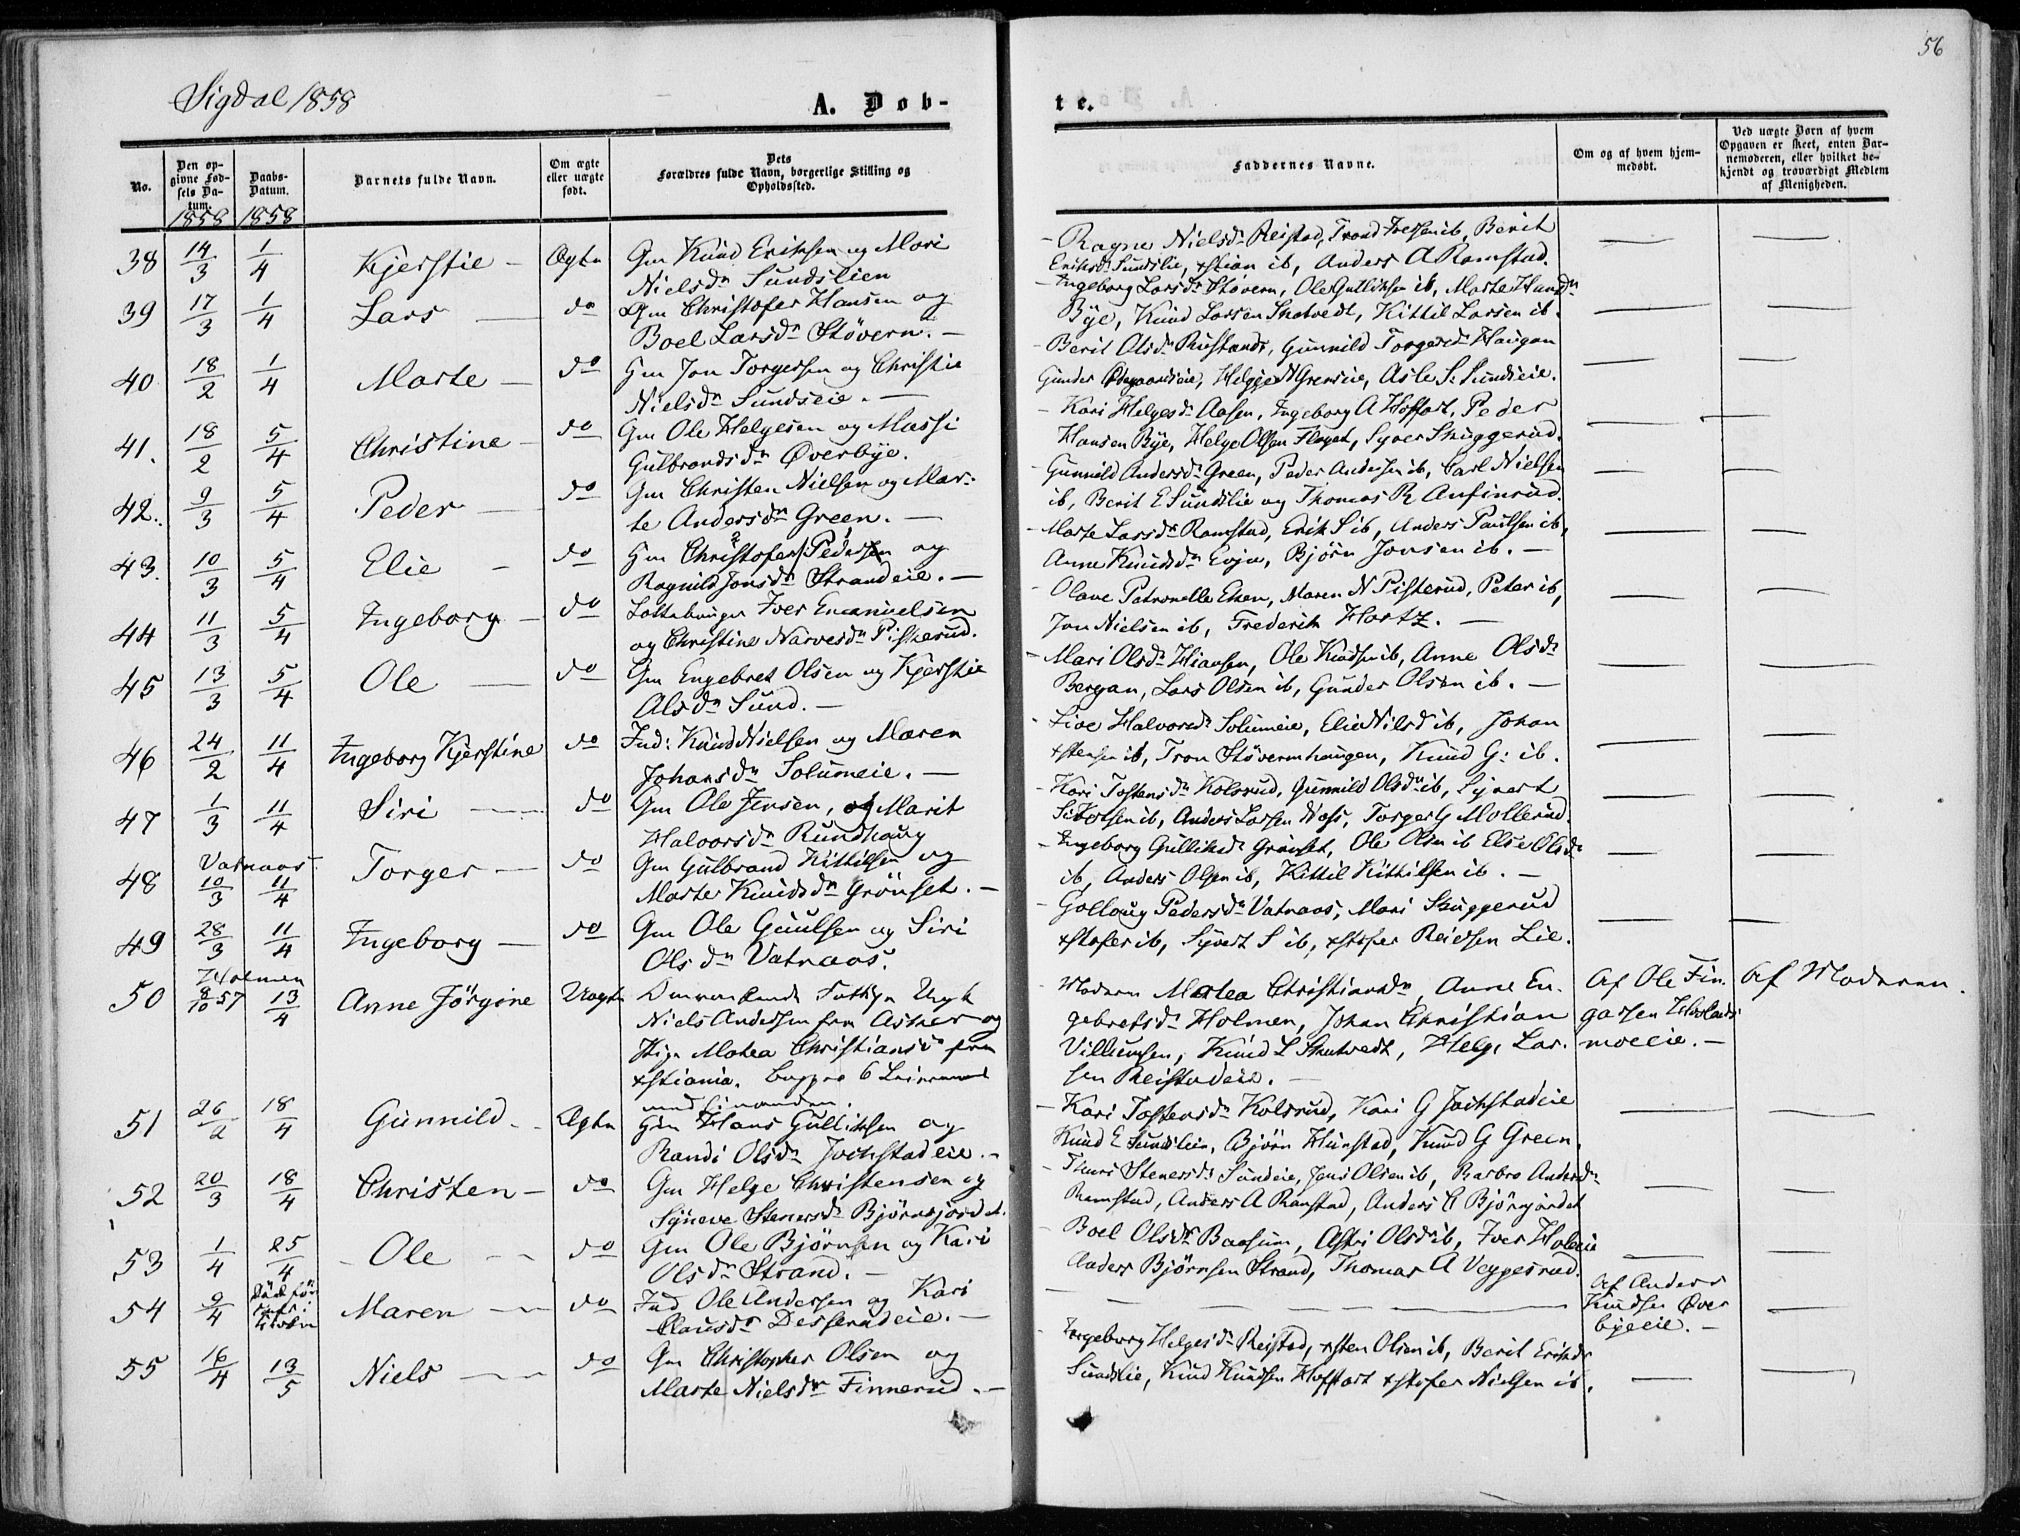 56
Sigdal 1858
A. Døb-
te.
No.
Den op-
givne Fød-
sels Da-
tum.
1858
Daabs-
Datum.
1858
Barnets fulde Navn.
Om ægte
eller uægte
født.
Dets
Forældres fulde Navn, borgerlige Stilling og
Opholdssted.
Faddernes Navne.
Om og af hvem hjem-
medøbt.
Ved uægte Børn af hvem
Opgaven er skeet, enten Bar-
nemoderen, eller hvilket be-
kjendt og troværdigt Medlem
af Menigheden.
38 14/3 1/4 Kjerstie - Ægte Gm Knud Eriksen og Mari
Nielsdr Sundslien
- Ragne Nielsdr Reistad, Trond Iversen ib, Berit
Eriksdr Sundslie, xstian ib, Anders A Ramstad.
39 17/3 1/4 Lars — do Gm Christofer Hansen og
Boel Larsdr Støvern. -
- Ingeborg Larsdr Støvern, Ole Gulliksen ib, Marte
Bye, Knud Larsen Skatvedt, Kittil Larsen ib.
40 18/2 1/4 Marte - do Gm Jon Torgersen og Christie
Nielsdr Sundseie. -
- Berit Olsdr Rustand, Gunnild Torgersdr Haugan
Gunder Ødegaardseie, Helge N Grenseie, Asle S. Sundseie.
41. 18/2 5/4 Christine - do Gm Ole Helgesen og Massi
Gulbrandsdr Øverbye.
- Kari Helgesdr Aasen, Ingeborg A Hoffart, Peder
Hansen Bye, Helge Olsen, Syver Skuggerud.
42. 9/3 5/4 Peder — do Gm Christen Nielsen og Mar-
te Andersdr Green. -
- Gunnild Andersdr Green, Peder Andersen ib, Carl Nielsen
ib, Berit E Sundslie og Thomas R Anfinrud.
43. 10/3 5/4 Elie - do Gm Christofer Pedersen og
Ragnild Jonsdr Strandeie. -
- Marte Larsdr Ramstad, Erik S ib, Anders Paulsen ib,
Anne Knudsdr Evju, Bjørn Jonsen ib. -
44 11/3 5/4 Ingeborg - do Iver Emanuelsen
og Christine Narvesdr Pisterud.
- Olave Petronelle Essen, Maren N Pisterud, Peter ib,
Jon Nielsen ib, Frederik Hartz. -
45 13/3 5/4 Ole — do Gm Engebret Olsen og Kjerstie
Alsdr Sund. -
- Mari Olsdr Hiansen, Ole Knudsen ib, Anne Olsdr
Bergan, Lars Olsen ib, Gunder Olsen ib. -
46 24/2 11/4 Ingeborg Kjerstine do Ind: Knud Nielsen og Maren
Johansdr Solumeie. -
- Live Halvorsdr Solumeie, Elie Nilsd ib, Johan
xstensen ib, Tron Støvernhaugen, Knud G: ib.
47 1/3 11/4 Siri — do Gm Ole Jensen, og Marit
Halvorsdr Rundhaug
- Kari Tostensdr Kolsrud, Gunnild Olsdr ib, Syvert
ib, Anders Larsen Moss, Torger G Mollerud.
48 Vatnaas 10/3 11/4 Torger - do Gm Gulbrand Kittilsen og
Marte Knudsdr Grønset. -
- Ingeborg Gulliksdr Grønset, Ole Olsen ib Elsie Olsdr
ib, Anders Olsen ib, Kittil Kittilsen ib. -
49 28/3 11/4 Ingeborg - do Gm Ole Guulsen og Siri
Olsdr Vatnaas.
- Gollaug Pedersdr Vatnaas, Mari Skuggerud
xstofer ib, Syvert S ib, xstofer Reiersen Lie.
50 Holmen 8/10 57 13/4 Anne Jörgine Uægte
Niels Andersen fra Asker og
Pige Matea Christiansdr fra
xstiania. 6
Moderen Matea Christiansdr, Anne En-
gebretsdr Holmen, Johan Christian
Villumsen, Knud L Skatvedt, Helge Lar-
sen Reistadeie. -
Af Ole Fin-
garsen
moeeie. -
Af Moderen.
51 26/2 18/4 Gunnild - Ægte Gm Hans Gulliksen og
Randi Olsdr Jockstadeie. -
- Kari Tostensdr Kolsrud, Kari G Jockstadeie
Knud E Sundslien, Bjørn Hunstad, Knud G Green.
52 20/3 18/4 Christen - do Gm Helge Christensen og
Syneve Stenersdr Bjørngjordet.
- Thuri Stenersdr Sundeie, Jens Olsen ib, Barbro Andersdr
Ramstad, Anders A Ramstad, Anders C Bjørngjordet
53 1/4 25/4 - Ole - do Gm Ole Bjørnsen og Kari
Olsdr Strand. -
- Boel Olsdr Baasum, Astri Olsd ib, Iver Holmeie
Anders Bjørnsen Strand, Thomas A Veggesrud.
54 9/4 Maren — do Ind Ole Andersen og Kari
Clausdr Desserudeie. -
Af Anders
Knudsen Øver
byeeie. -
55 16/4 13/5 Niels — do Gm Christopher Olsen og
Marte Nielsdr Finnerud. -
- Ingeborg Helgesdr Reistad, xsten Olsen ib, Berit Eriksdr
Sundslie, Knud Knudsen Hoffart xstofer Nielsen ib.